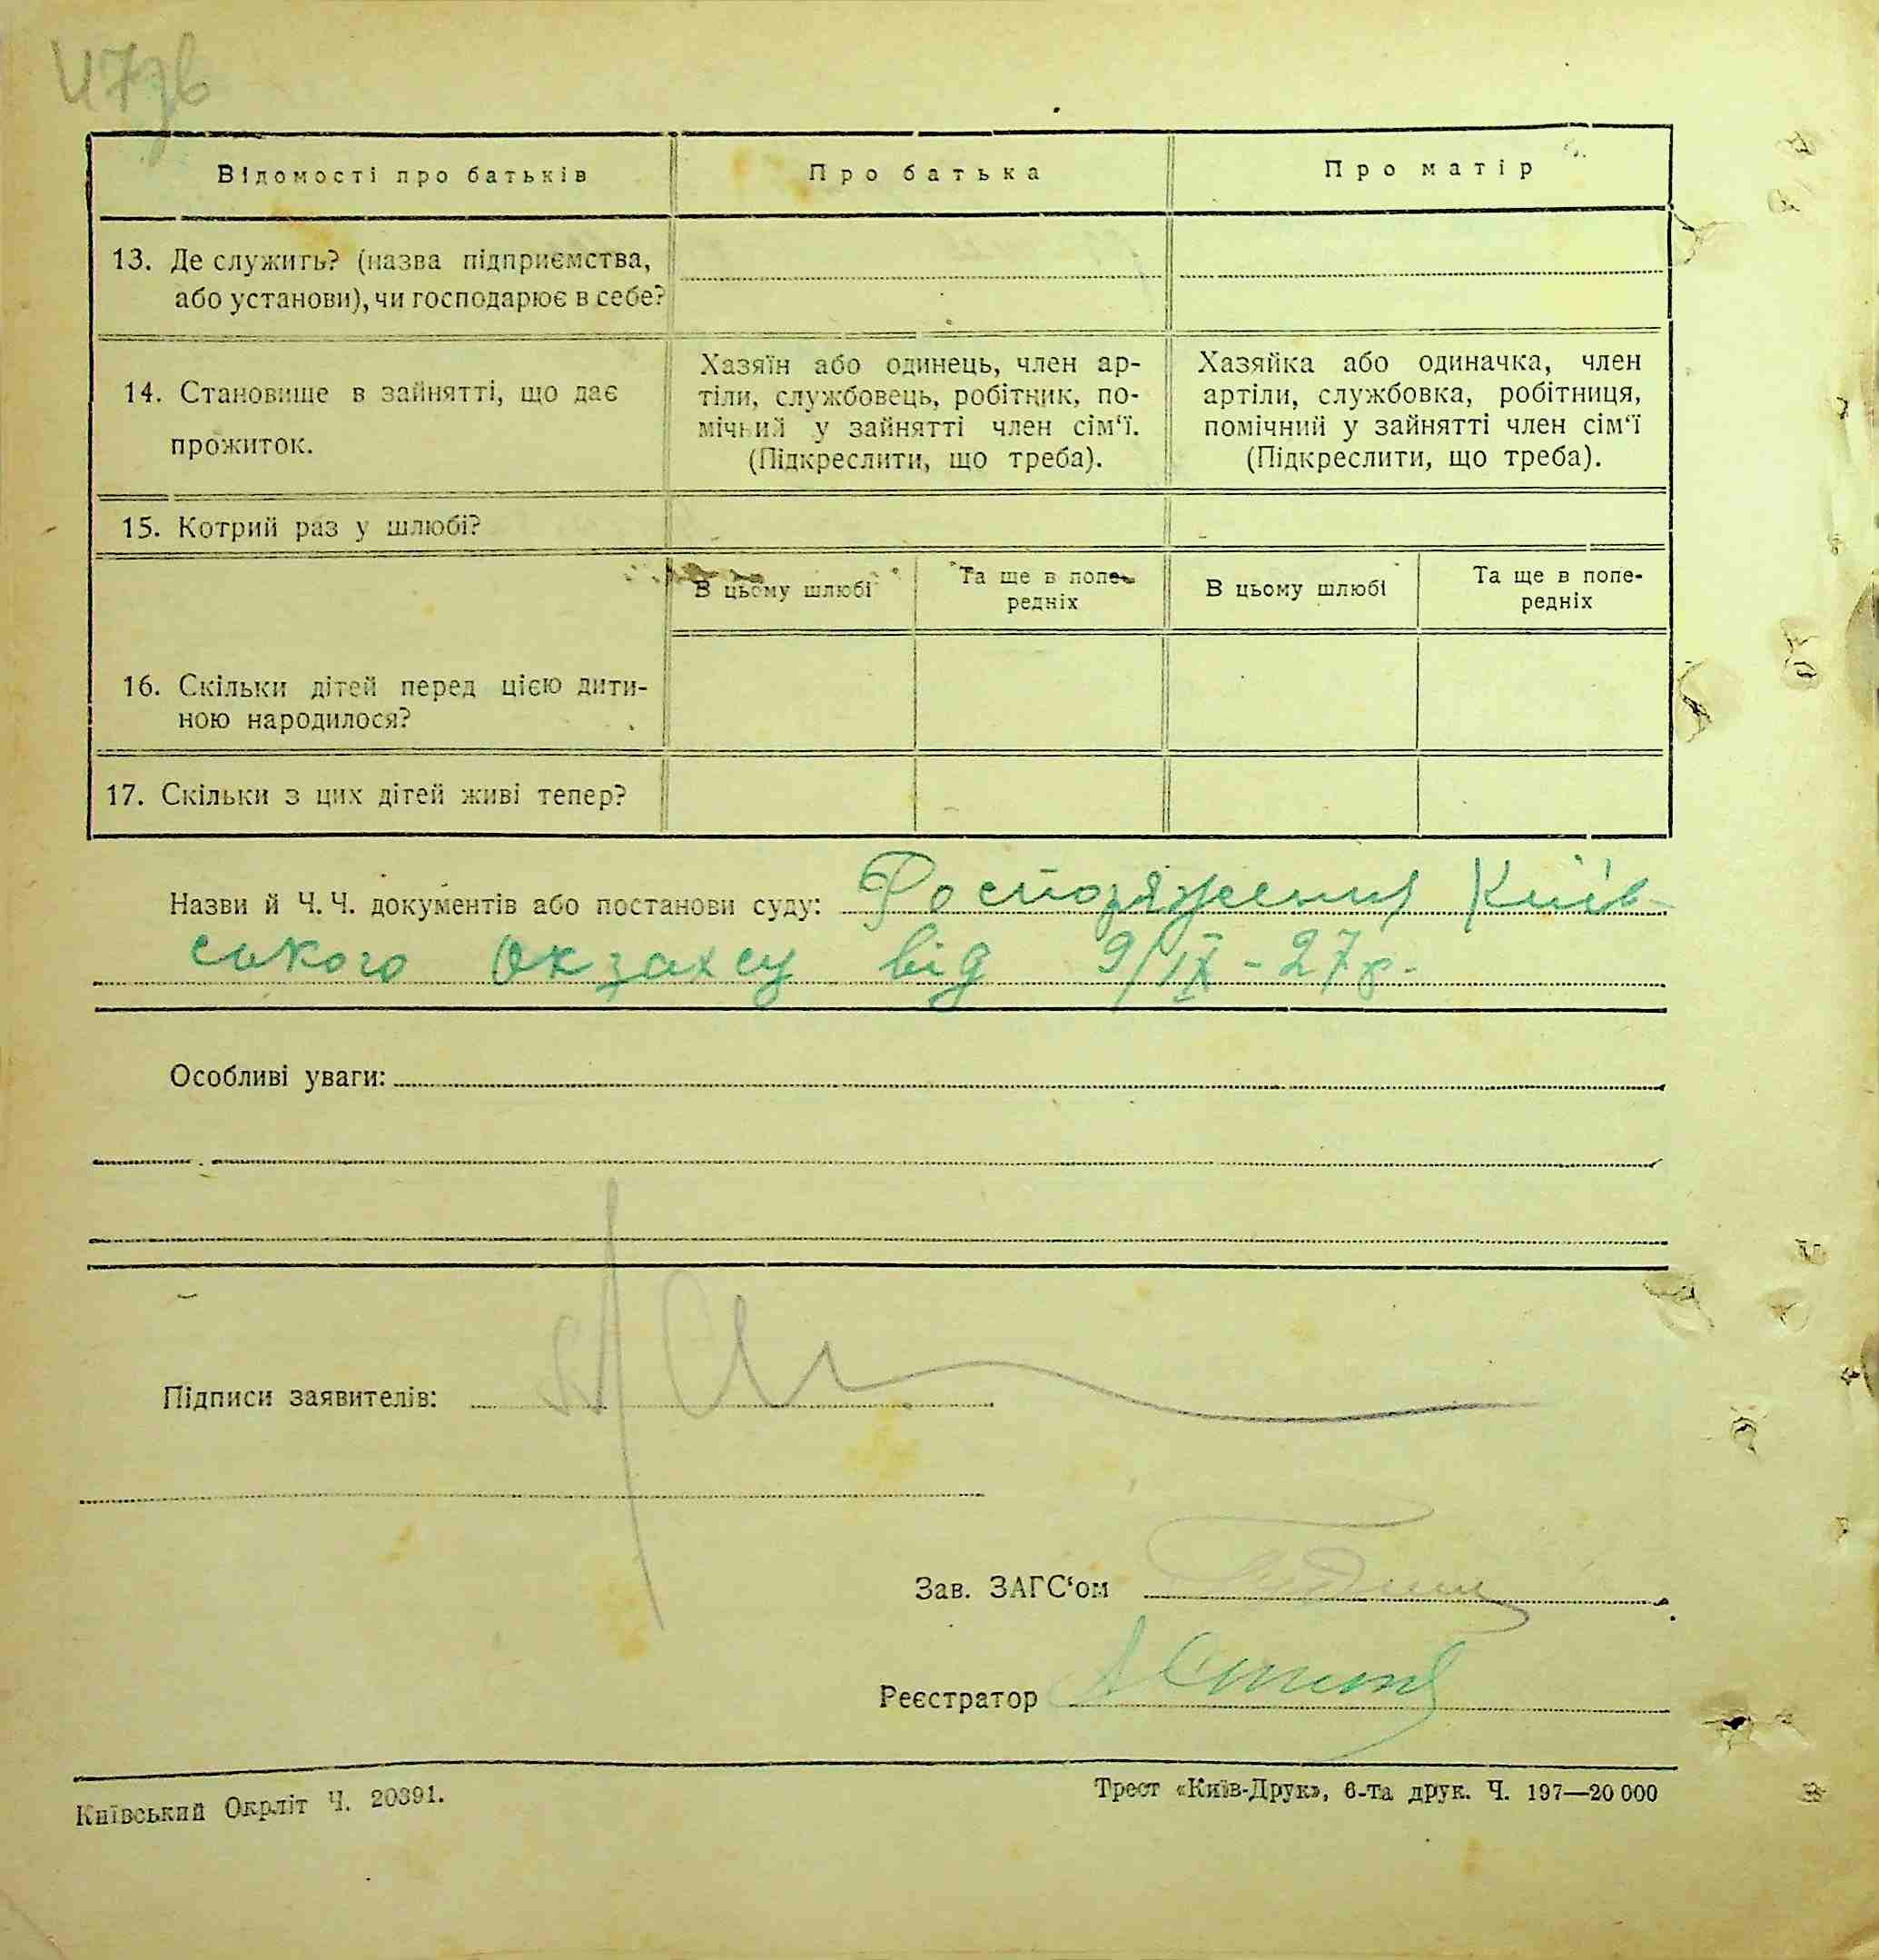 47зв
Відомості про батьків
Про батька
Про матір
13. Де служить? (назва підприємства,
або установи), чи господарює в себе?
14. Становище в зайнятті, що дає
прожиток.
Хазяїн або одинець, член ар-
тіли, службовець, робітник, по-
мічний у зайнятті член сім‘ї.
(Підкреслити, що треба).
Хазяйка або одиначка, член
артіли, службовка, робітниця,
помічний у зайнятті член сім‘ї
(Підкреслити, що треба).
15. Котрий раз у шлюбі?
В цьому шлюбі
Та ще в попе-
редніх
В цьому шлюбі
Та ще в попе-
редніх
16. Скільки дітей перед цією дити-
ною народилося?
17. Скільки з цих дітей живі тепер?
Назви й Ч. Ч. документів або постанови суду: Роспоряження Київ-
ського Окзахсу від 9/IX - 27 р.
Особливі уваги:
Підписи заявителів:
Зав. ЗАГС‘ом
Реєстратор
Київський Окрліт Ч. 20391.
Трест «Київ-Друк», 6-та друк. Ч. 197—20 000